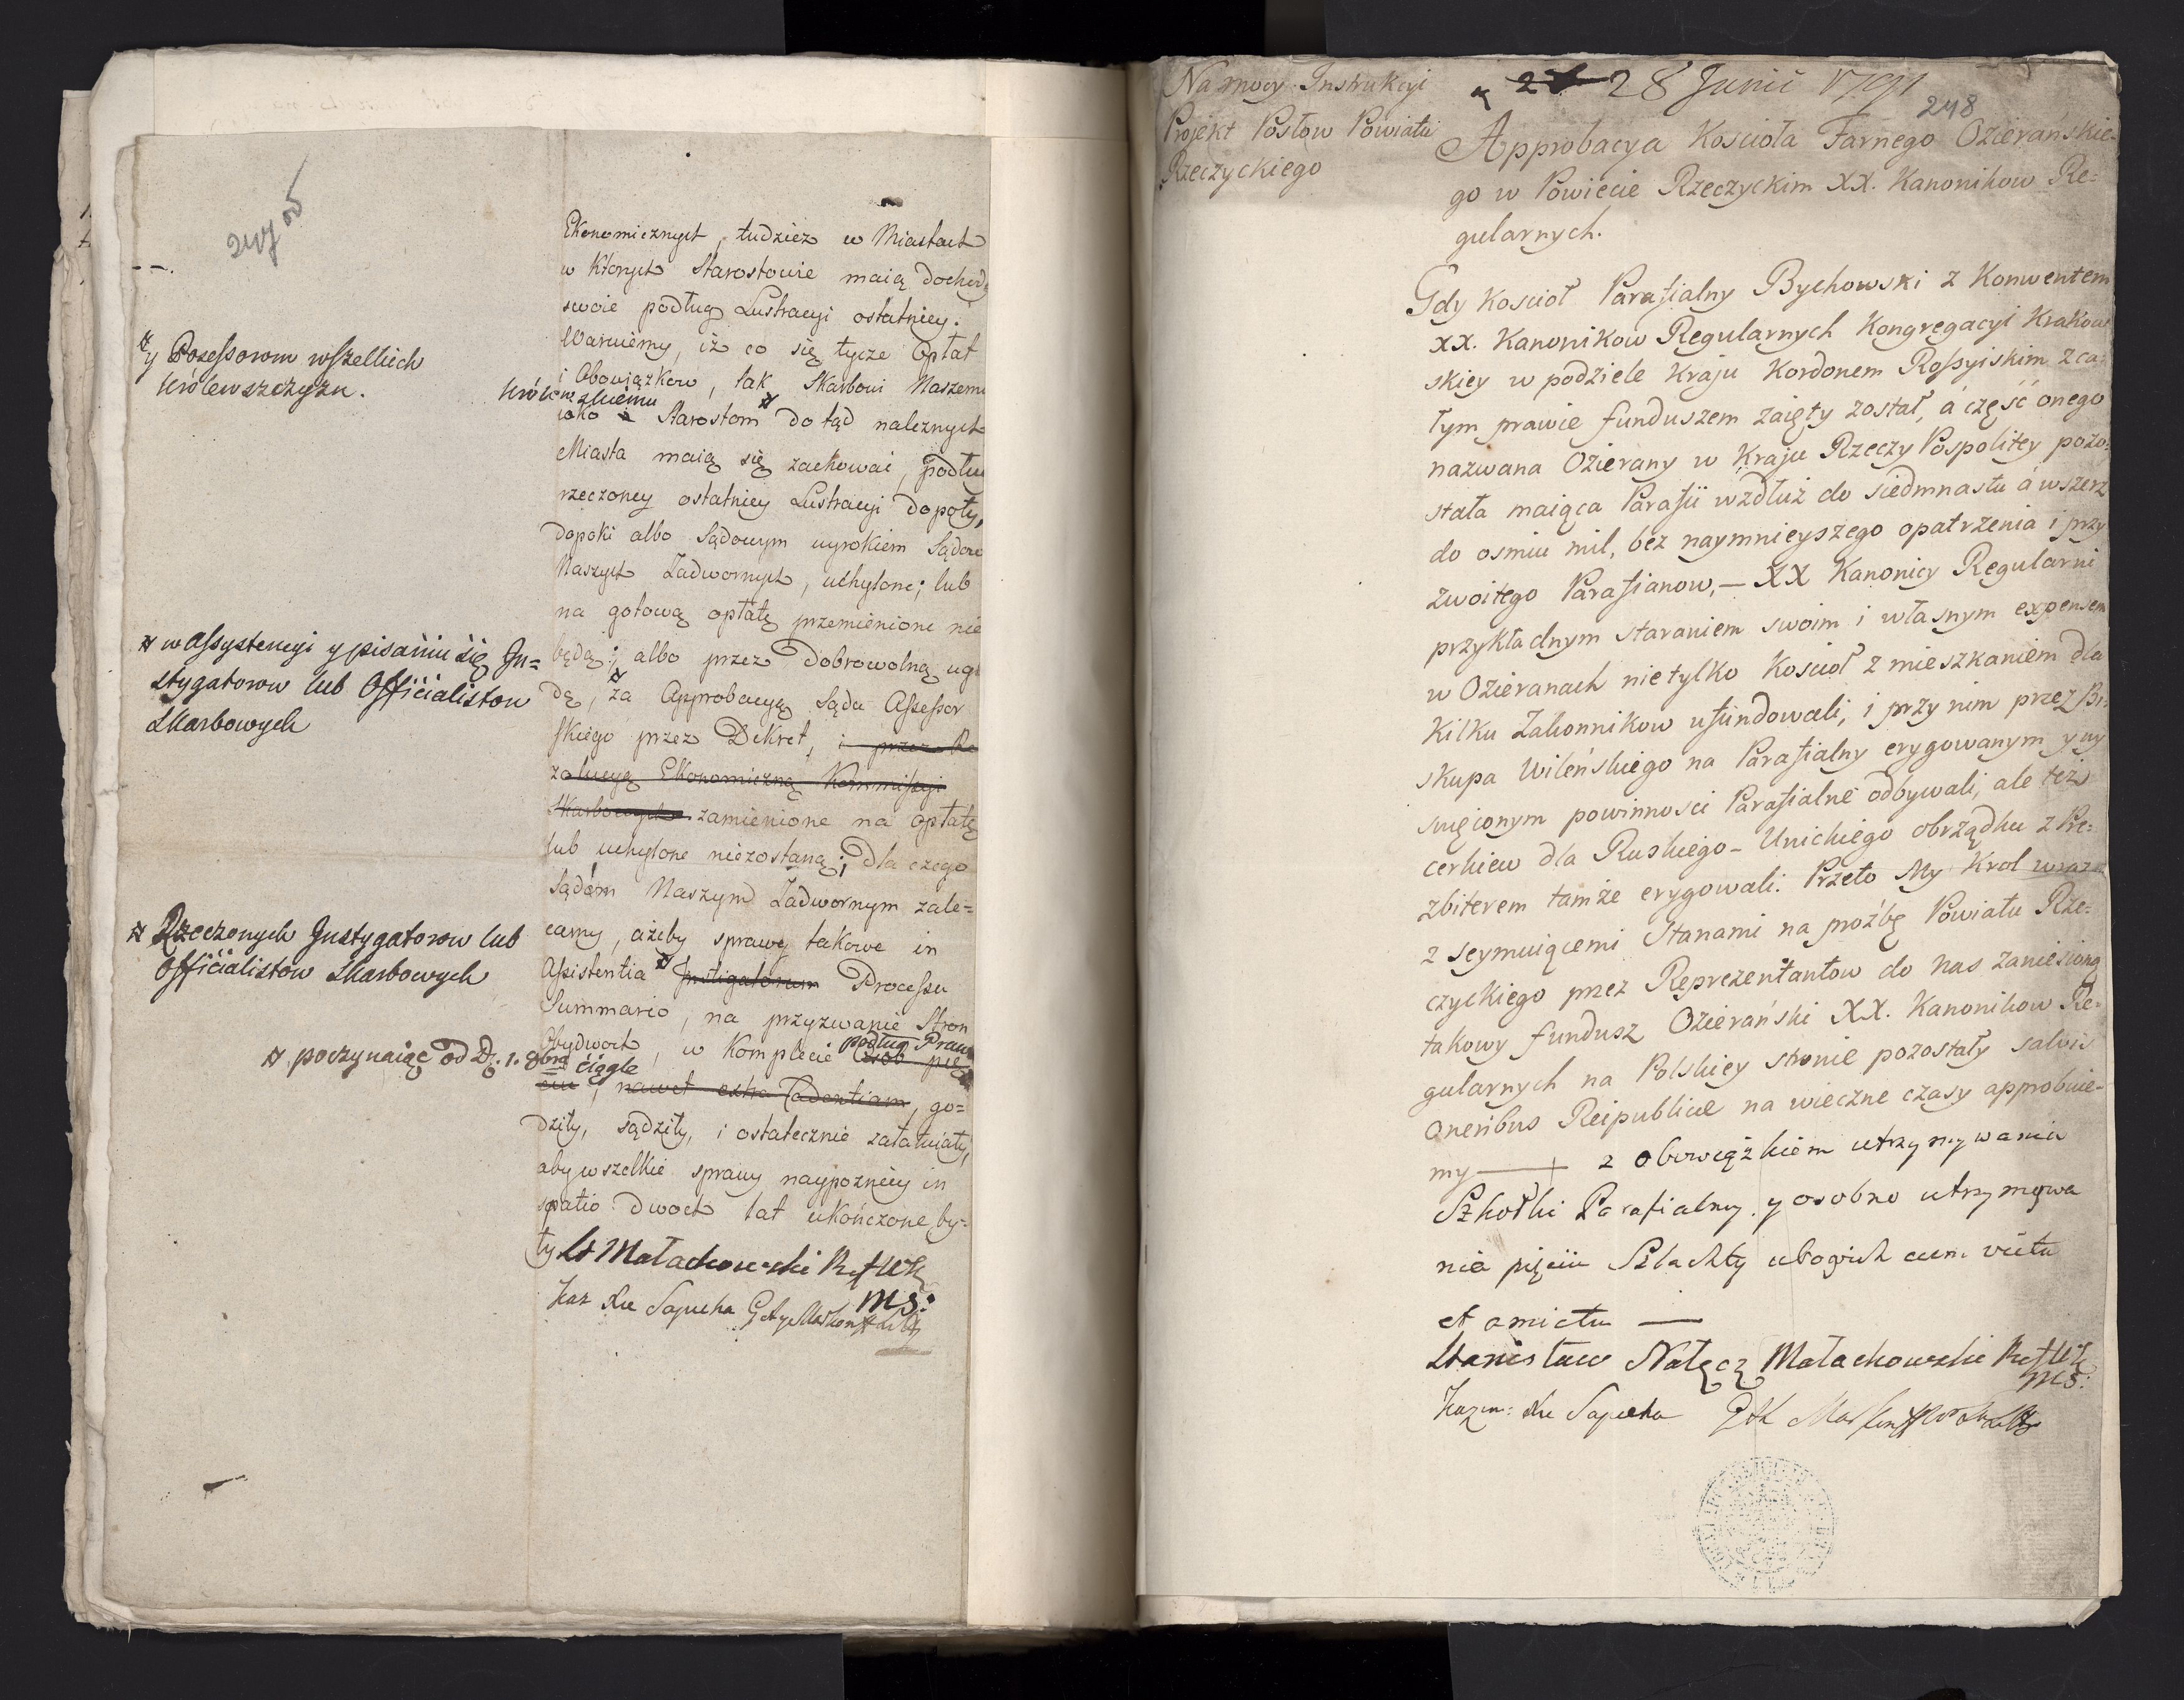 247 od
Ekonomicznych, tudzież w Miastach
w których Starostowie maią dochody
swoie podług Lustracyi ostatniey.
Waruiemy, iż co się tycze Opłat
i Obowiązkow, tak Skarbowi Naszemu
królewskiemu
iako i Starostom do tąd należnych
# y Posessorom wszelkich
królewszczyzn.
Miasta maią się zachować, podług
rzeczoney ostatniey Lustracyi dopoty,
dopoki albo Sądowym wyrokiem Sądow
Naszych Zadwornych, uchylone; lub
na gotową opłatę przemienione nie
będą; albo przez Dobrowolną ugo
# w Assystencyi y pisaniu się In=
stygatorow lub Officialistow
Skarbowych
dę, # za Approbacyą Sądu Assessor
skiego przez Dekret, i przez Re
zolucyą Ekonomiczną Kommissyi
Skarbowych zamienione na opłatę
lub uchylone niezostaną; Dla czego
Sądóm Naszym Zadwornym zale=
camy, ażeby sprawy takowe in
Assistentia # Instigatorum Processu
# Rzeczonych Instygatorow lub
Officialistow Skarbowych
Summario, na przyzwanie Stron
Obydwoch, w Komplecie podług Prawa
osob pię
# poczynaiąc od D. 1. 8bra ciągle
ciu, nawet extra Cadentiam, go=
dziły, sądziły, i ostatecznie załatwiały,
aby wszelkie sprawy naypozniey in
spatio dwoch lat ukończone by=
ły St Małachowski
ms:
Kaz Xże Sapieha
Na mocy Instrukcyi
Projekt Posłow Powiatu
Rzeczyckiego
28 Junii 1791
248
Approbacya Kościoła Farnego Ozierańskie-
go w Powiecie Rzeczyckim XX. Kanonikow Re=
gularnych.
Gdy Kościoł Parafialny Bychowski z Konwentem
XX. Kanonikow Regularnych Kongregacyi Krakow
skiey w podziele Kraju Kordonem Rossyiskim z ca=
łym prawie funduszem zaięty został, á część onego
nazwana Ozierany w Kraju Rzeczy Pospolitey pozo=
stała maiąca Parafii wzdłuż do siedmnastu á wszerz
do osmiu mil, bez naymnieyszego opatrzenia i przy
zwoitego Parafianow, — XX Kanonicy Regularni
przykładnym staraniem swoim i własnym expensem
w Ozieranach nietylko Kościoł z mieszkaniem dla
kilku Zakonnikow ufundowali, i przy nim przez Bi=
skupa Wileńskiego na Parafialny erygowanym y wy
święconym powinności Parafialne odbywali, ale też
cerkiew dla Ruskiego-Unickiego obrządku z Pre=
zbiterem tamże erygowali. Przeto My Krol wraz
z Seymuiącemi Stanami na proźbę Powiatu Rze=
czyckiego przez Reprezentantow do nas zaniesioną
takowy fundusz Ozierański XX. Kanonikow Re=
gularnych na Polskiey stronie pozostały salvis
oneribus Reipublicæ na wieczne czasy approbuie-
my —— + z obowiązkiem utrzymywania
Szkołki Parafialney y osobno utrzymowa
nia pięciu Szlachty ubogich cum victu
et amictu ——
Stanisław Nałęcz Małachowski
ms:
Kazm: Xże Sapieha